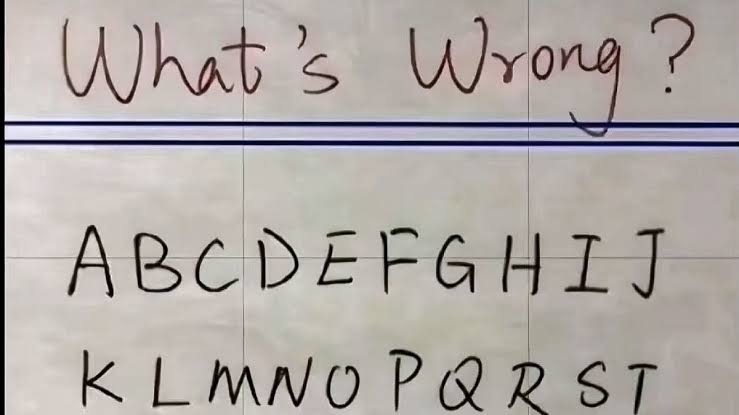 What's Wrong?
A B C D E F G H I J
K L M N O P Q R S T